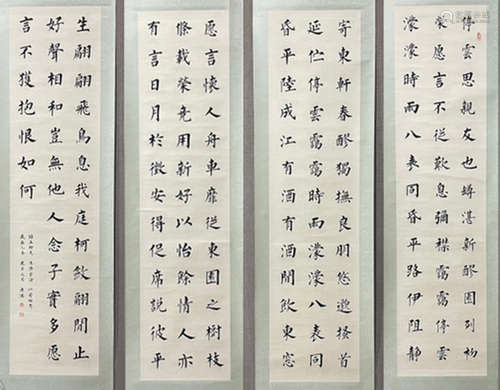 停雲思親友也罇湛新醪園列初
榮愿言不從歎息彌襟靄靄停雲
濛濛時雨八表同昏平路伊阻靜
寄東軒春醪獨撫良朋悠邈搔首
延伫停雲靄靄時雨濛濛八表同
昏平陸成江有酒有酒閒飲東窓
愿言懷人舟車靡從東園之樹枝
條載榮竞用新好以怡餘情人亦
有言日月於徵安得促席說彼平
生翩翩飛鳥息我庭柯斂翮閒止
好聲相和豈無他人念子實多愿
言不獲抱恨如何